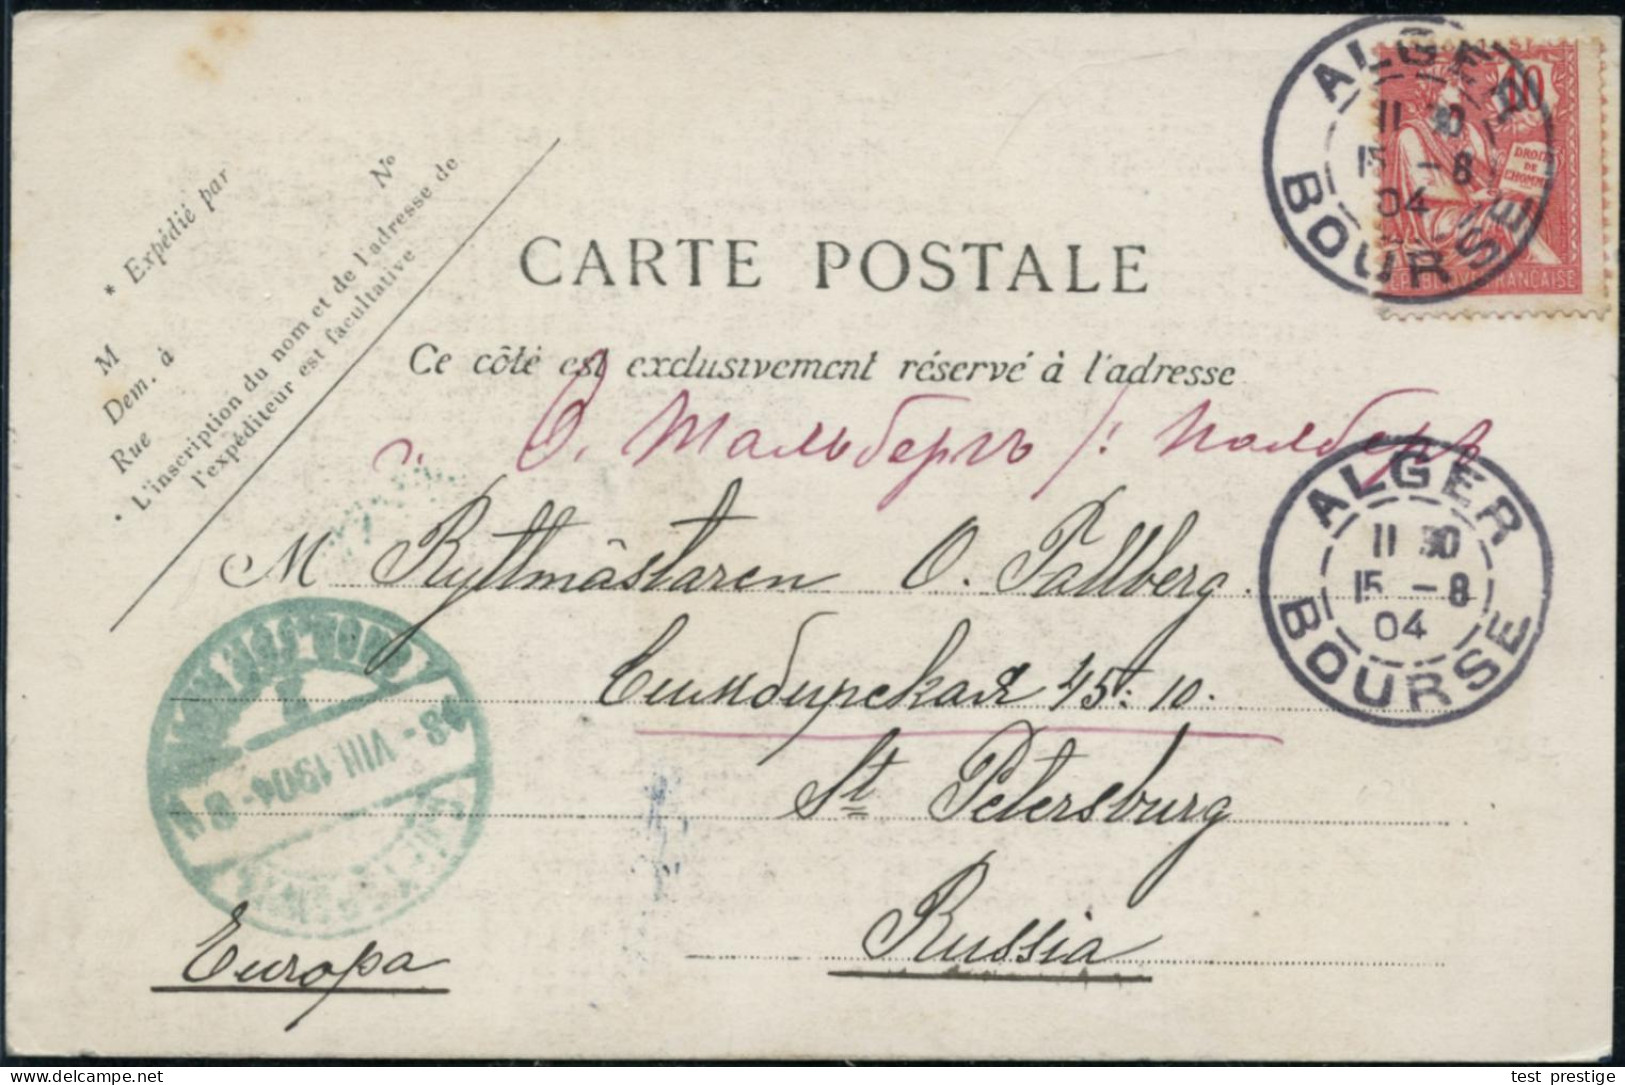 ALGER
11 30
15 -8
04
BOURSE
10
DROITS
DE
L'HOMME
REPUBLIQUE FRANÇAISE
* Expédié par
N°
M
Dem. à
Rue
* L'inscription du nom et de l'adresse de
l'expéditeur est facultative
CARTE POSTALE
Ce côté est exclusivement réservé à l'adresse
О. Тальбергъ
M Ryttmästaren O. Tallberg.
ALGER
11 30
15 -8
04
BOURSE
Симбирская 45: 10.
St Petersburg
Russia
VIII 1904
Europa
test prestige